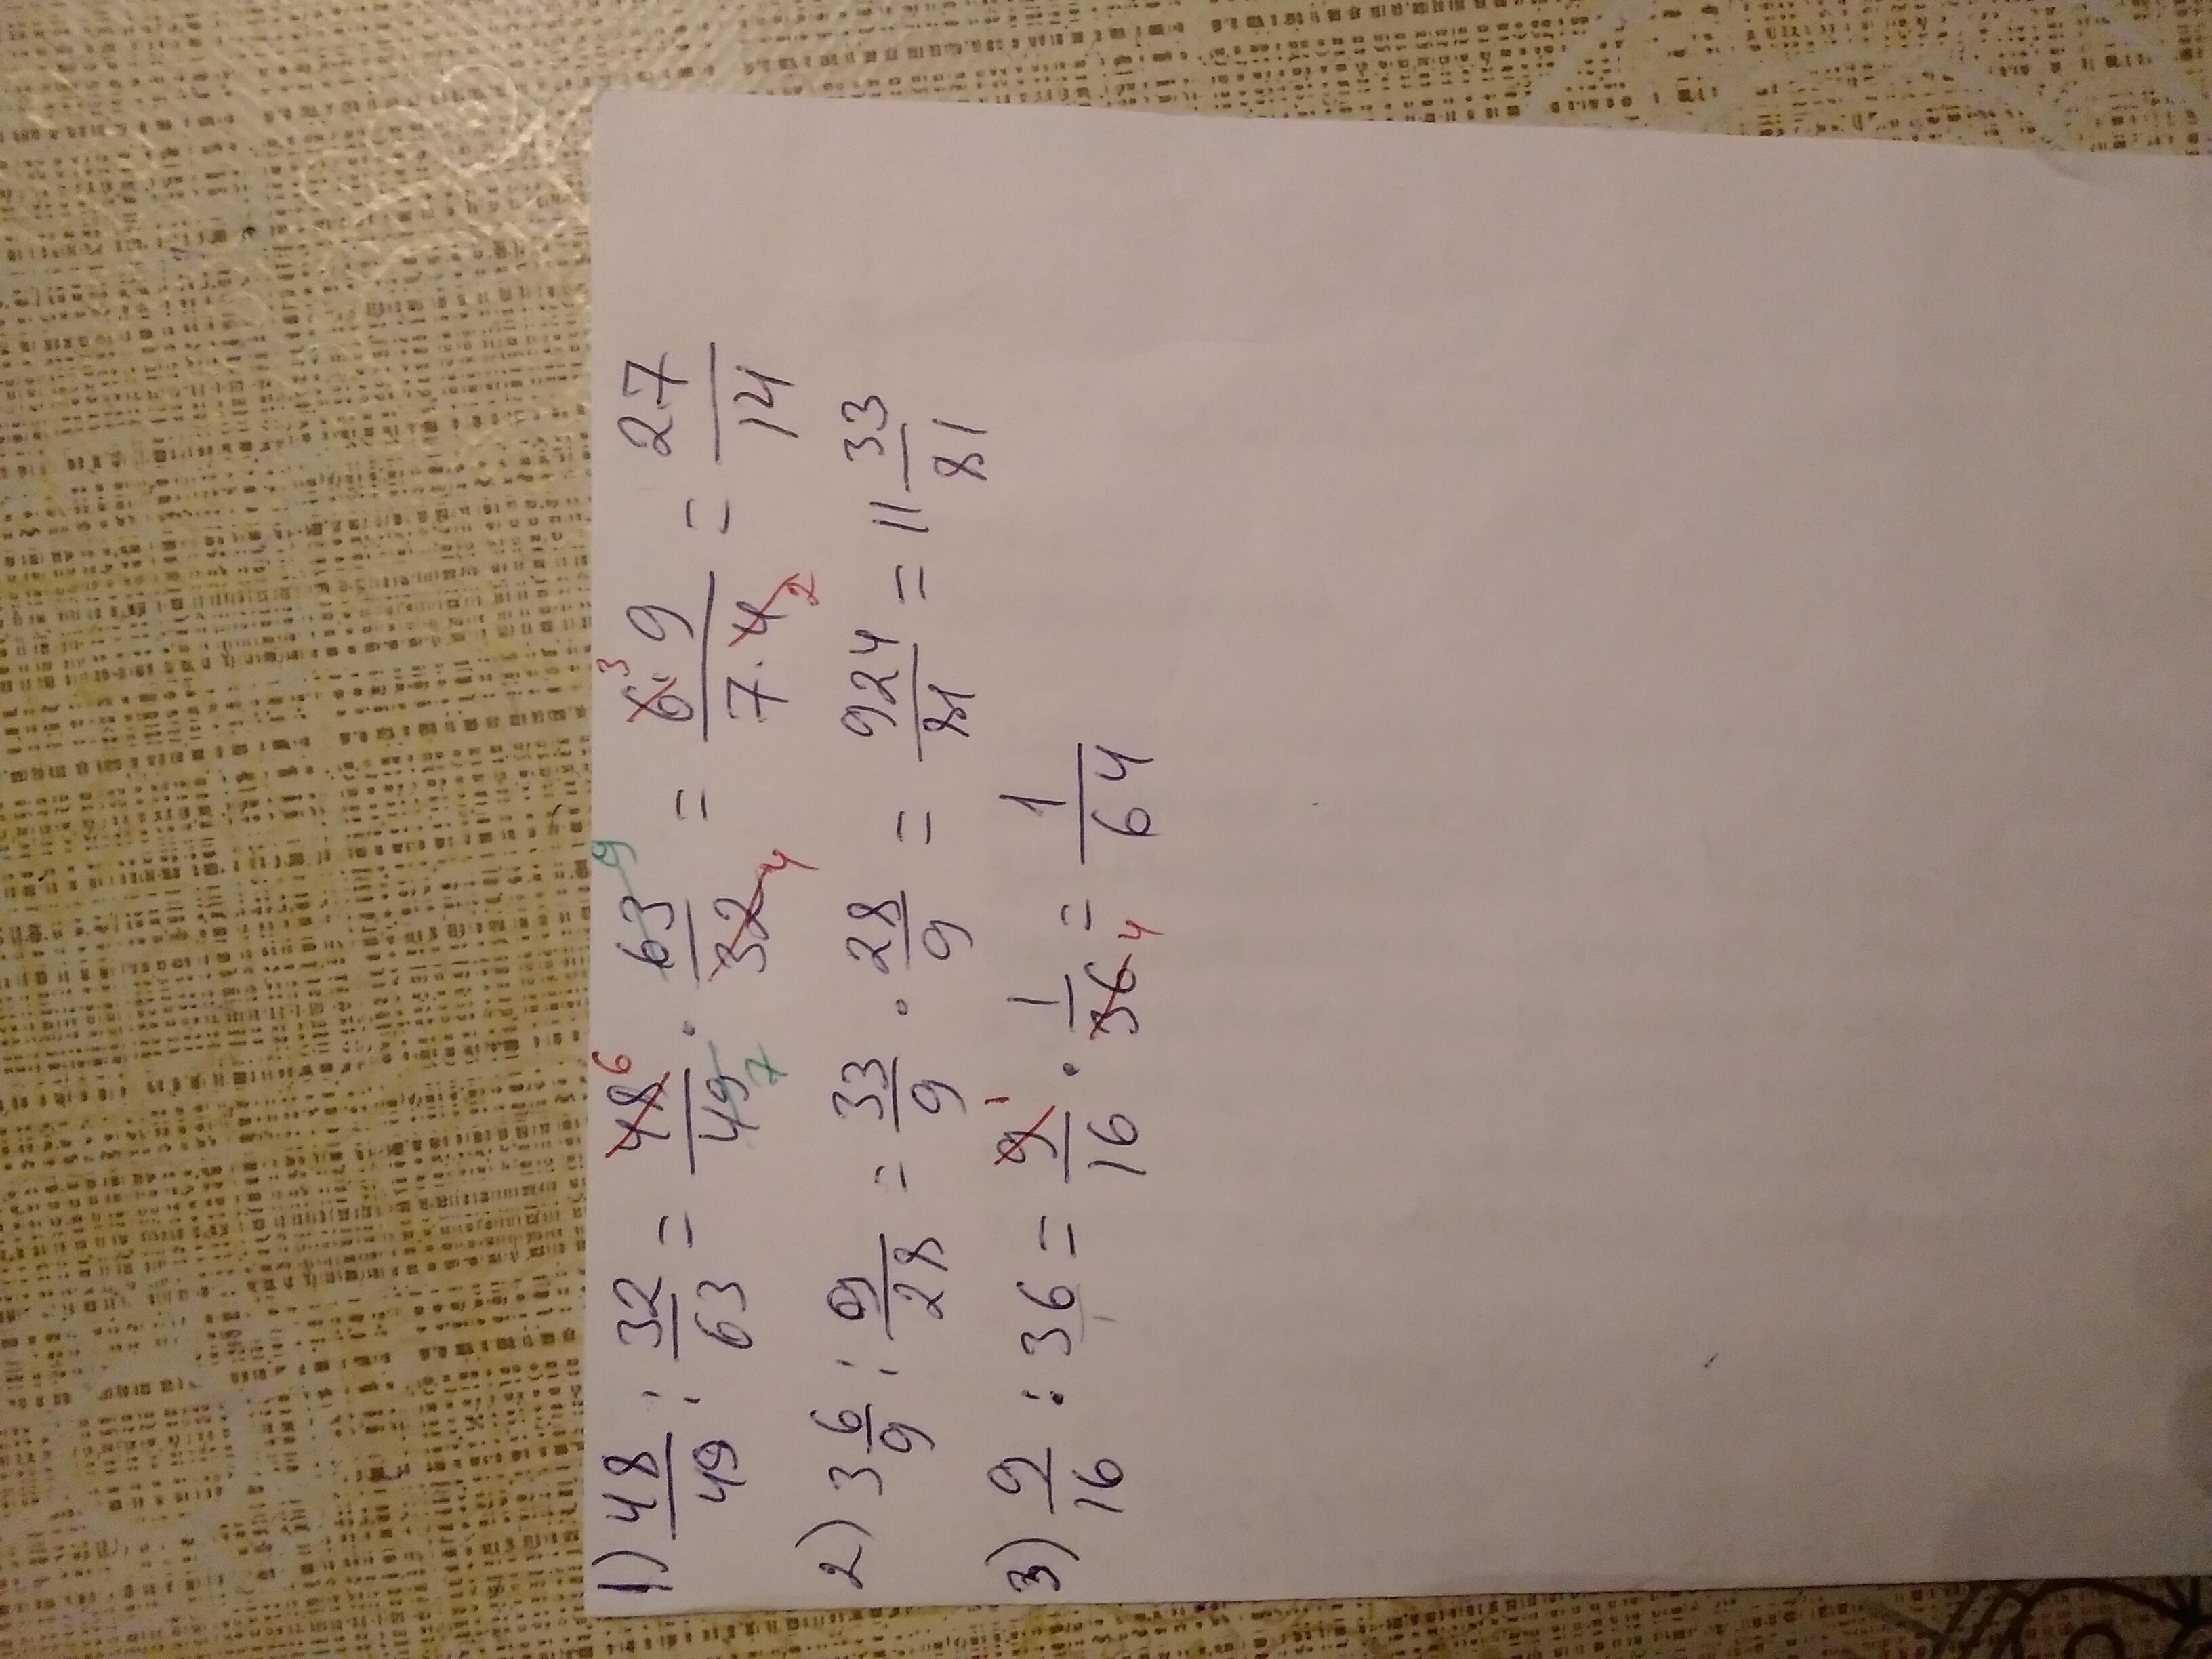 1) 48/49 : 32/63 = 48 6/49 7 · 63 9/32 4 = 6 3 · 9/7 · 4 2 = 27/14
2) 3 6/9 : 9/28 = 33/9 · 28/9 = 924/81 = 11 33/81
3) 9/16 : 36 = 9 1/16 · 1/36 4 = 1/64